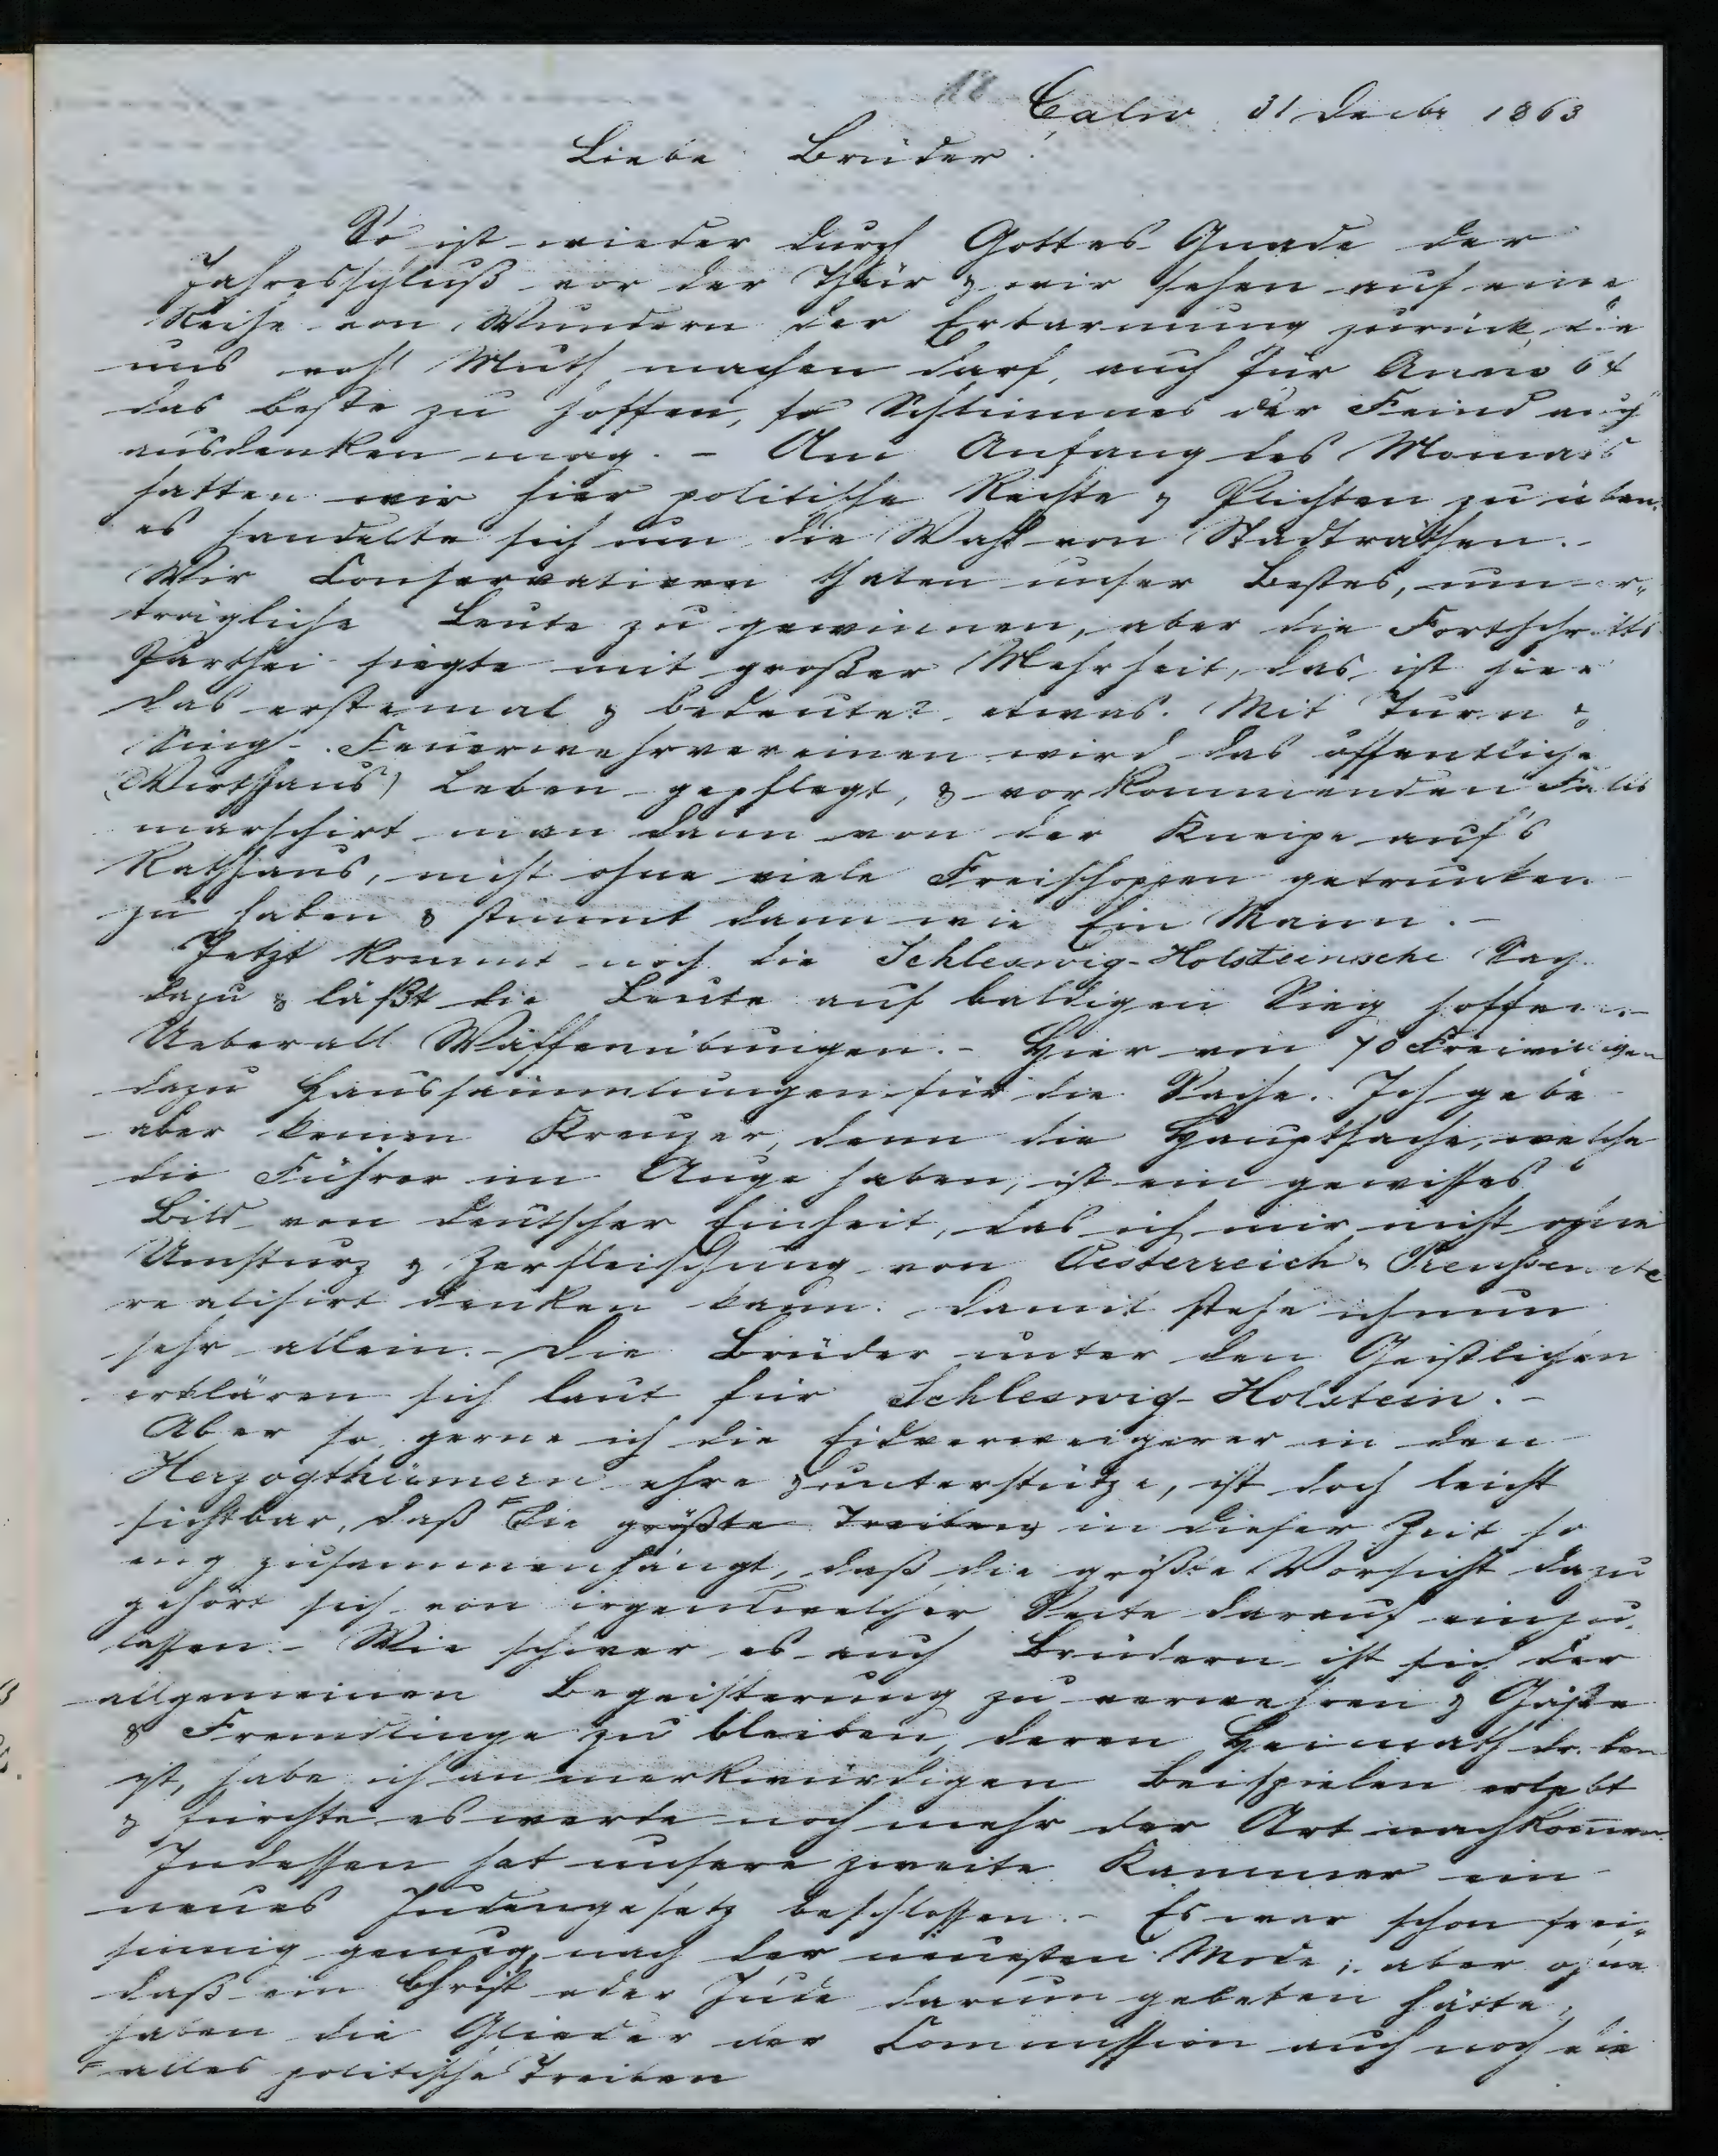 18
Calw 31 Decbr 1863
Liebe Brüder!
So ist wieder durch Gottes Gnade der
Jahresschluß vor der Thür & wir sehen auf eine
Reihe von Wundern der Erbarmung zurück, die
uns wohl Muth machen darf, auch für Anno 64
das beste zu hoffen, so Schlimmes der Feind auch
ausdenken mag. - Am Anfang des Monats
hatten wir hier politische Rechte & Pflichten zu üben.
es handelte sich um die Wahl von Stadträthen. -
Wir Conservativen thaten unser Bestes, um er-
trägliche Leute zu gewinnen, aber die Fortschritts
Parthei siegte mit großer Mehrheit, das ist hier
das erstemal & bedeutet etwas. Mit Turn &
Sing- Feuerwehrvereinen wird das öffentliche
(Wirthhaus) Leben gepflegt, & vorkommenden Falls
marschirt man dann von der Kneipe auf's
Rathhaus, nicht ohne viele Freischoppen getrunken
zu haben & stimmt dann wie Ein Mann. -
Jetzt kommt noch die Schleswig-Holsteinsche Sache
dazu & läßt die Leute auf baldigen Sieg hoffen. -
Ueberall Waffenübungen. - Hier von 70 Freiwilligen
dazu Haussammlungen für die Sache. Ich gebe
aber keinen Kreuzer, denn die Hauptsache, welche
die Führer im Auge haben, ist ein gewisses
Bild von deutscher Einheit, das ich mir nicht ohne
Umsturz & Zerfleischung von Oesterreich, Preußen etc
realisirt denken kann. Damit stehe ich nun
sehr allein. - Die Brüder unter den Geistlichen
erklären sich laut für Schleswig-Holstein. -
Aber so gerne ich die Eidverweigerer in den
Herzogthümern ehre & unterstütze, ist doch leicht
sichtbar, daß die größte Treiberey in dieser Zeit so
eng zusammenhängt, daß die größte Vorsicht dazu
gehört sich von irgendwelcher Seite darauf einzu-
lassen. - Wie schwer es auch Brüdern ist sich der
allgemeinen Begeisterung zu verwehren & Gäste
& Fremdlinge zu bleiben, deren Heimath droben
ist, habe ich an merkwürdigen Beispielen erlebt
& fürchte es werde noch mehr der Art nachkommen.
Indessen hat unsere zweite Kammer ein
neues Judengesetz beschlossen. - Es war schon frei-
sinnig genug, nach der neuesten Mode; aber ohne
daß ein Christ oder Jude darum gebeten hätte,
haben die Glieder der Commission auch noch die
alles politische Treiben